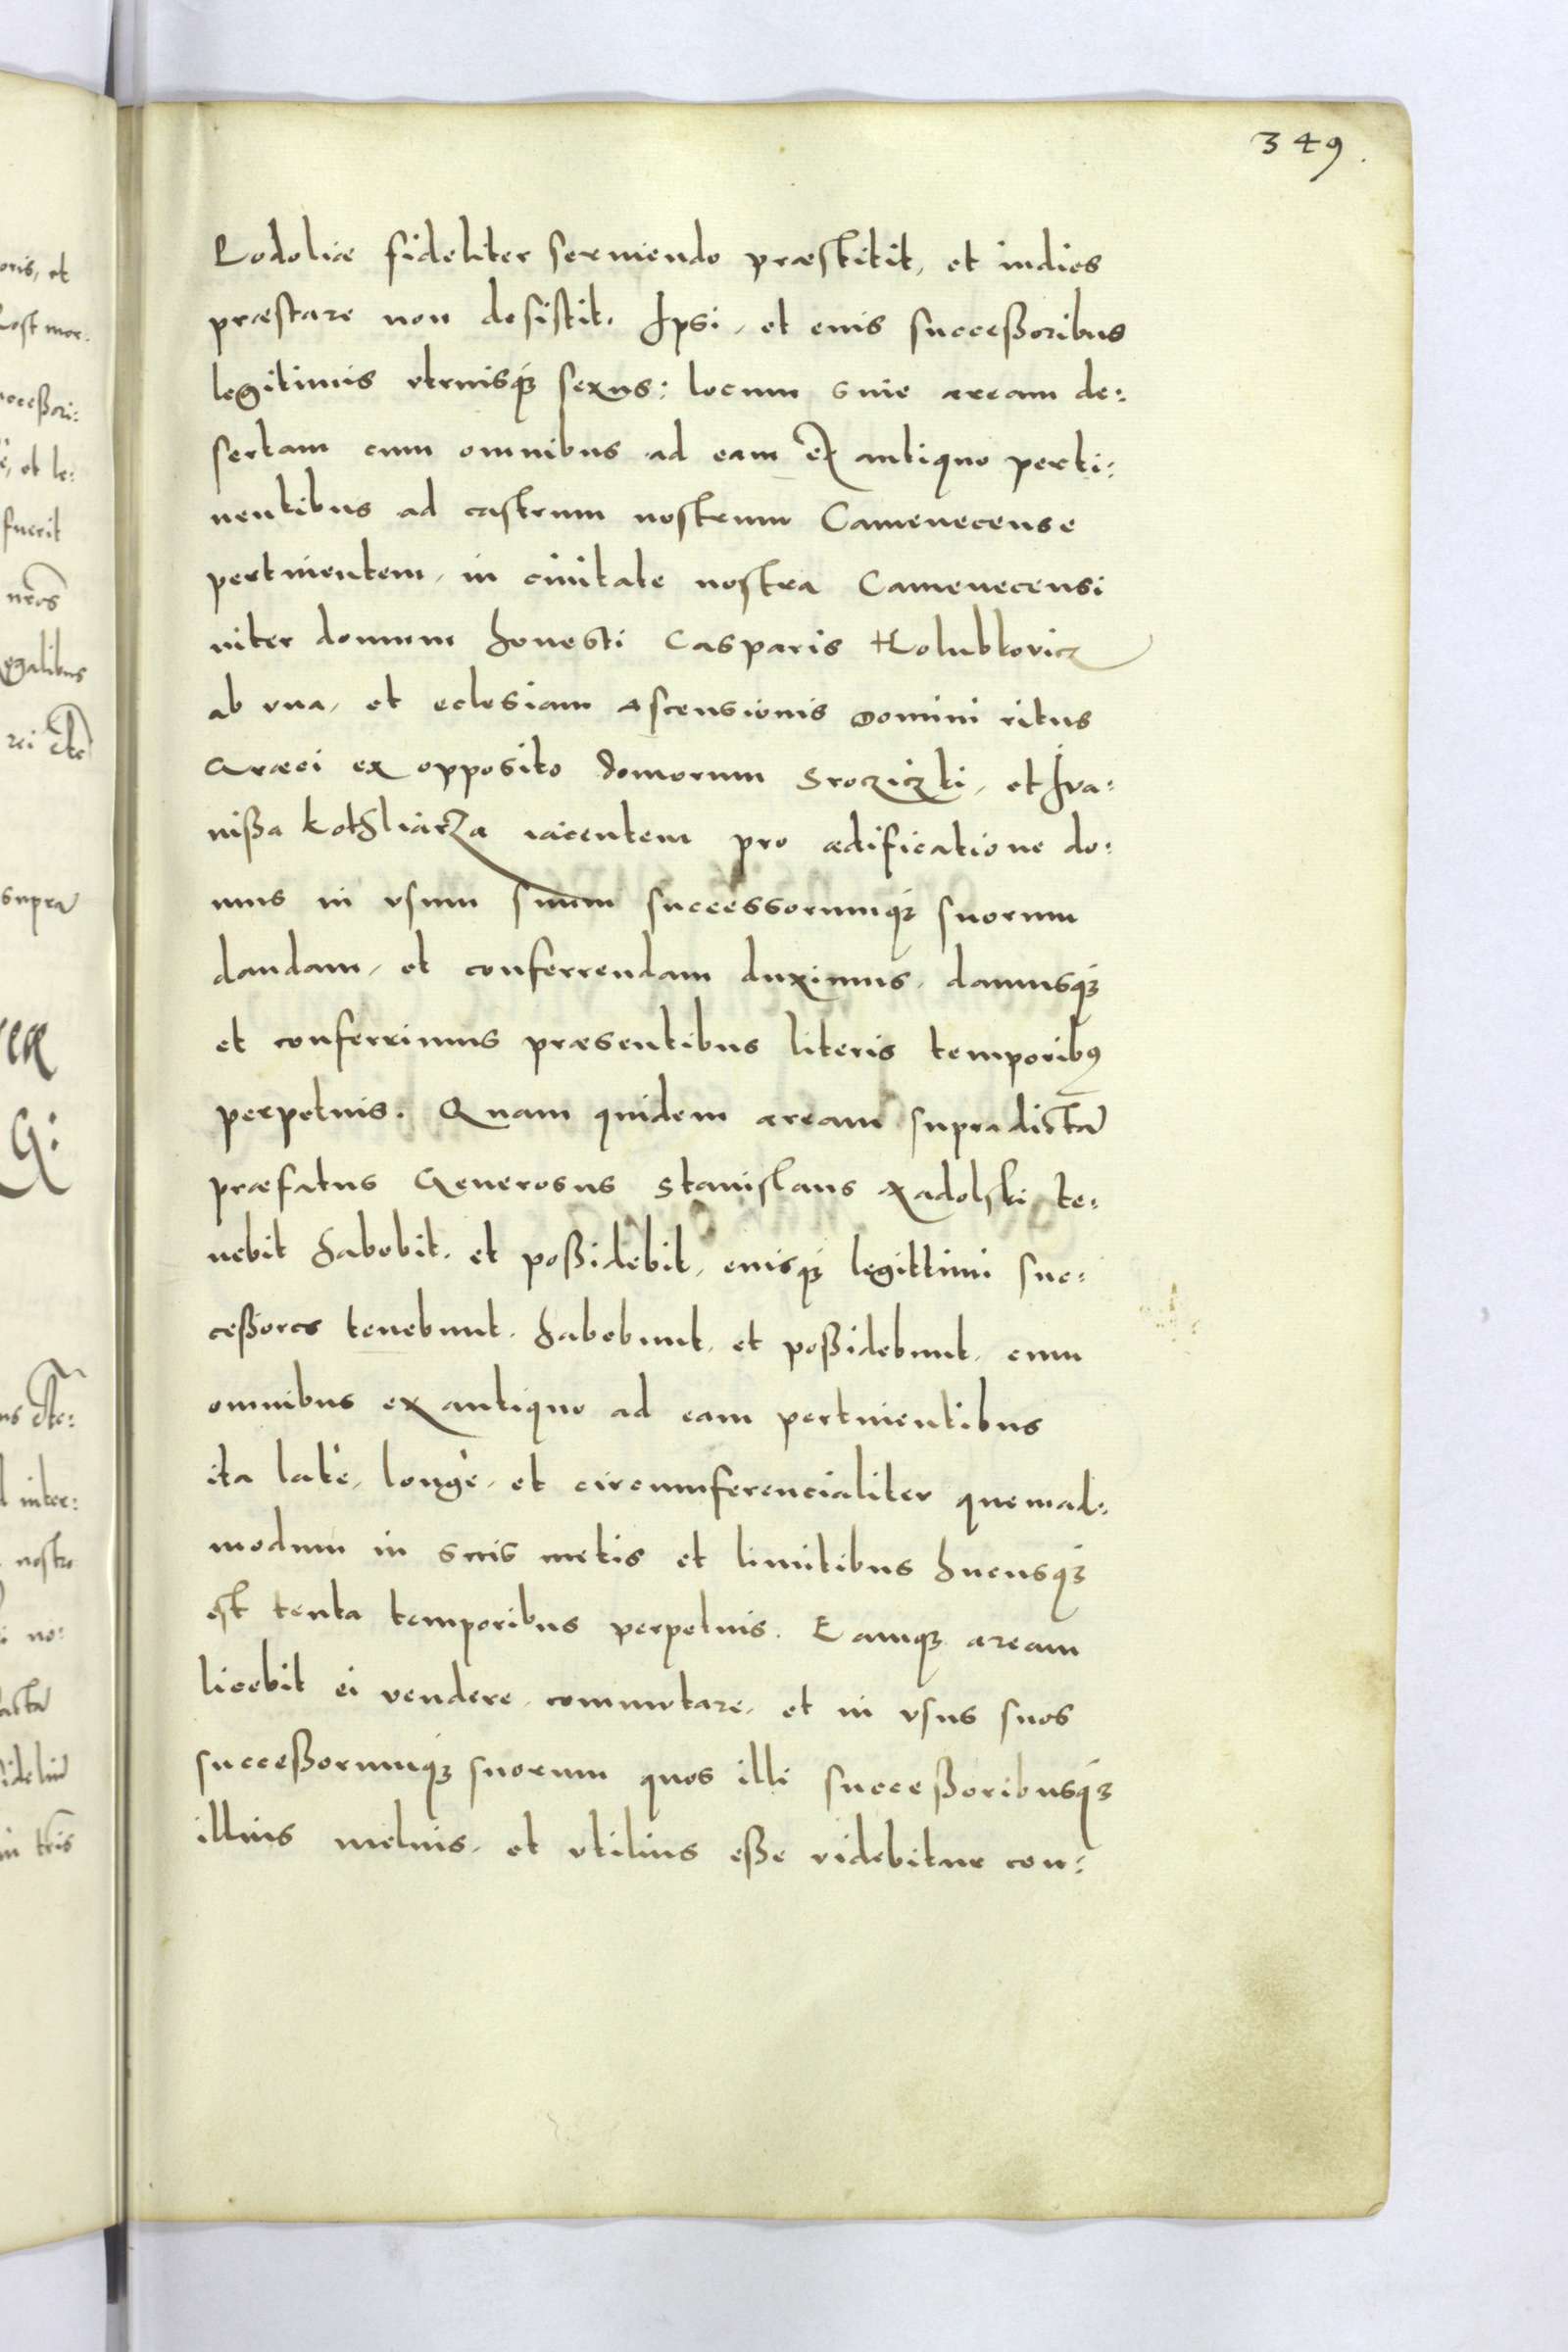 349.
Podoliæ fideliter seruiendo præstitit, et indies
præstare non desistit. Ipsi, et euis successoribus
legitimis vtriusq3 sexus: locum siue aream de:
sertam cum omnibus ad eam ex antiquo perti:
nentibus ad castrum nostrum Camenecense
pertinentem, in ciuitate nostra Camenecensi
inter domum honesti Casparis Holubkovicz
ab vna, et eclesiam Ascensionis Domini ritus
Græci ex opposito domorum Srocziczki, et Iva:
nissa kothliarza iacentem pro ædificatione do:
mus in vsum suum successorumq3 suorum
dandam, et conferrendam duximus, damusq3
et conferrimus præsentibus literis temporib9
perpetuis. Quam quidem aream supradictā
præfatus Generosus Stanislaus Radolski te:
nebit habebit, et possidebit, euisq3 legittimi suc:
cessores tenebunt, habebunt, et possidebunt, cum
omnibus ex antiquo ad eam pertinentibus
ita latè, longè, et circumferencialiter quemad:
modum in suis metis et limitibus hucusq3
est tenta temporibus perpetuis. Eamq3 aream
licebit ei vendere, commutare, et in vsus suos
successorumq3 suorum quos illi successoribusq3
illius melius, et vtilius esse videbitur con: